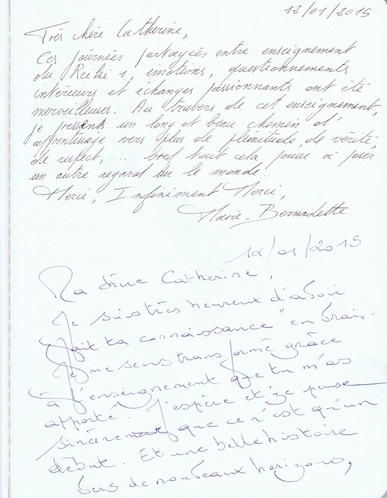 12/01/2015
Très chère Catherine,
Ces journées partagées entre enseignement
du Reiki 1, émotions, questionnements
intérieurs et échanges passionnants ont été
merveilleuses. Au travers de cet enseignement,
je pressents un long et beau chemin d'
apprentissage vers plus de plénitude, de vérité,
de respect, ... bref tout cela pour
un autre regard sur le monde.
Merci, Infiniment Merci,
Marie-Bernadette
12/01/2015
Ma chère Catherine,
Je suis très heureux d'avoir
fait ta connaissance "en vrai.
Je me sens transformé grâce
à l'enseignement que tu m'as
apporté. J'espère et je pense
sincèrement que ce n'est qu'un
début. Et une belle histoire
vers de nouveaux horizons,